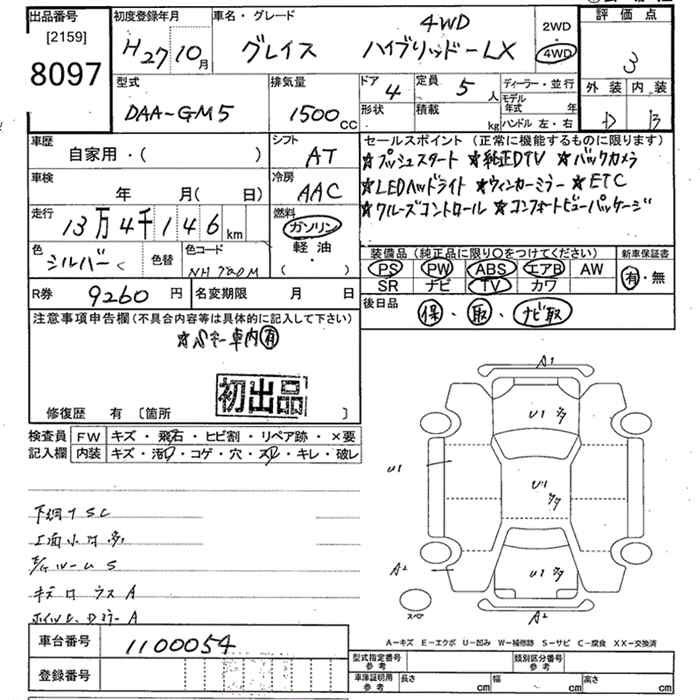 出品番号 初度登録年月 車名・グレード 4WD 2WD 評価点
[2159] H27 10月 グレイス ハイブリッドーLX 4WD 3
8097 型式 排気量 ドア 4 定員 5人 ディーラー・並行 外装 内装
DAA-GM5 1500CC 形状 積載 kg モデル年式 年 D B
ハンドル 左・右
車歴 シフト セールスポイント (正常に機能するものに限ります)
自家用・( ) AT ☆プッシュスタート ☆純正DTV ☆バックカメラ
車検 冷房 ☆LEDヘッドライト ☆ウィンカーミラー ☆ETC
年 月( 日) AAC ☆クルーズコントロール ☆コンフォートビューパッケージ
走行 13万4千146km 燃料 ガソリン
軽油
( ・ )
色 シルバー 色替 色コード NH780M 装備品 (純正品に限り○をつけてください) 新車保証書
PS PW ABS エアB AW 有・無
R券 9260円 名変期限 月 日 SR ナビ TV カワ
注意事項申告欄(不具合内容等は具体的に記入して下さい) 後日品 保・取・ナビ取
車内有
初出品
修復歴 有 〔箇所 〕
検査員 FW キズ・飛石・ヒビ割・リペア跡・×要
記入欄 内装 キズ・汚・コゲ・穴・スレ・キレ・破レ
A1
U1
U1
U1
A2
U1
A2
スペア
下廻サSC
S
A
A
A-キズ E-エクボ U-凹み W-補修跡 S-サビ C-腐食 XX-交換済
車台番号 1100054
登録番号
型式指定番号 参考 類別区分番号 参考
車庫証明用 参考 長さ cm 幅 cm 高さ cm